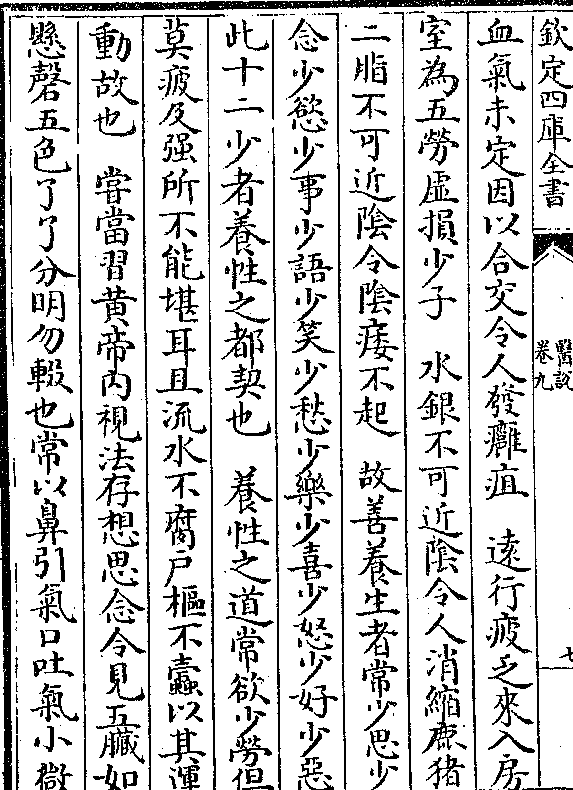 欽定四庫全書
醫說
卷九
七
血氣未定因以合交令人發癰疽　遠行疲乏來入房
室為五勞虛損少子　水銀不可近陰令人消縮鹿猪
二脂不可近陰令陰痿不起　故善養生者常少思少
念少慾少事少語少笑少愁少樂少喜少怒少好少惡
此十二少者養性之都契也　養性之道常欲少勞但
莫疲及强所不能堪耳且流水不腐户樞不蠹以其運
動故也　嘗當習黄帝内視法存想思念令見五臟如
懸磬五色了了分明勿輟也常以鼻引氣口吐氣小微